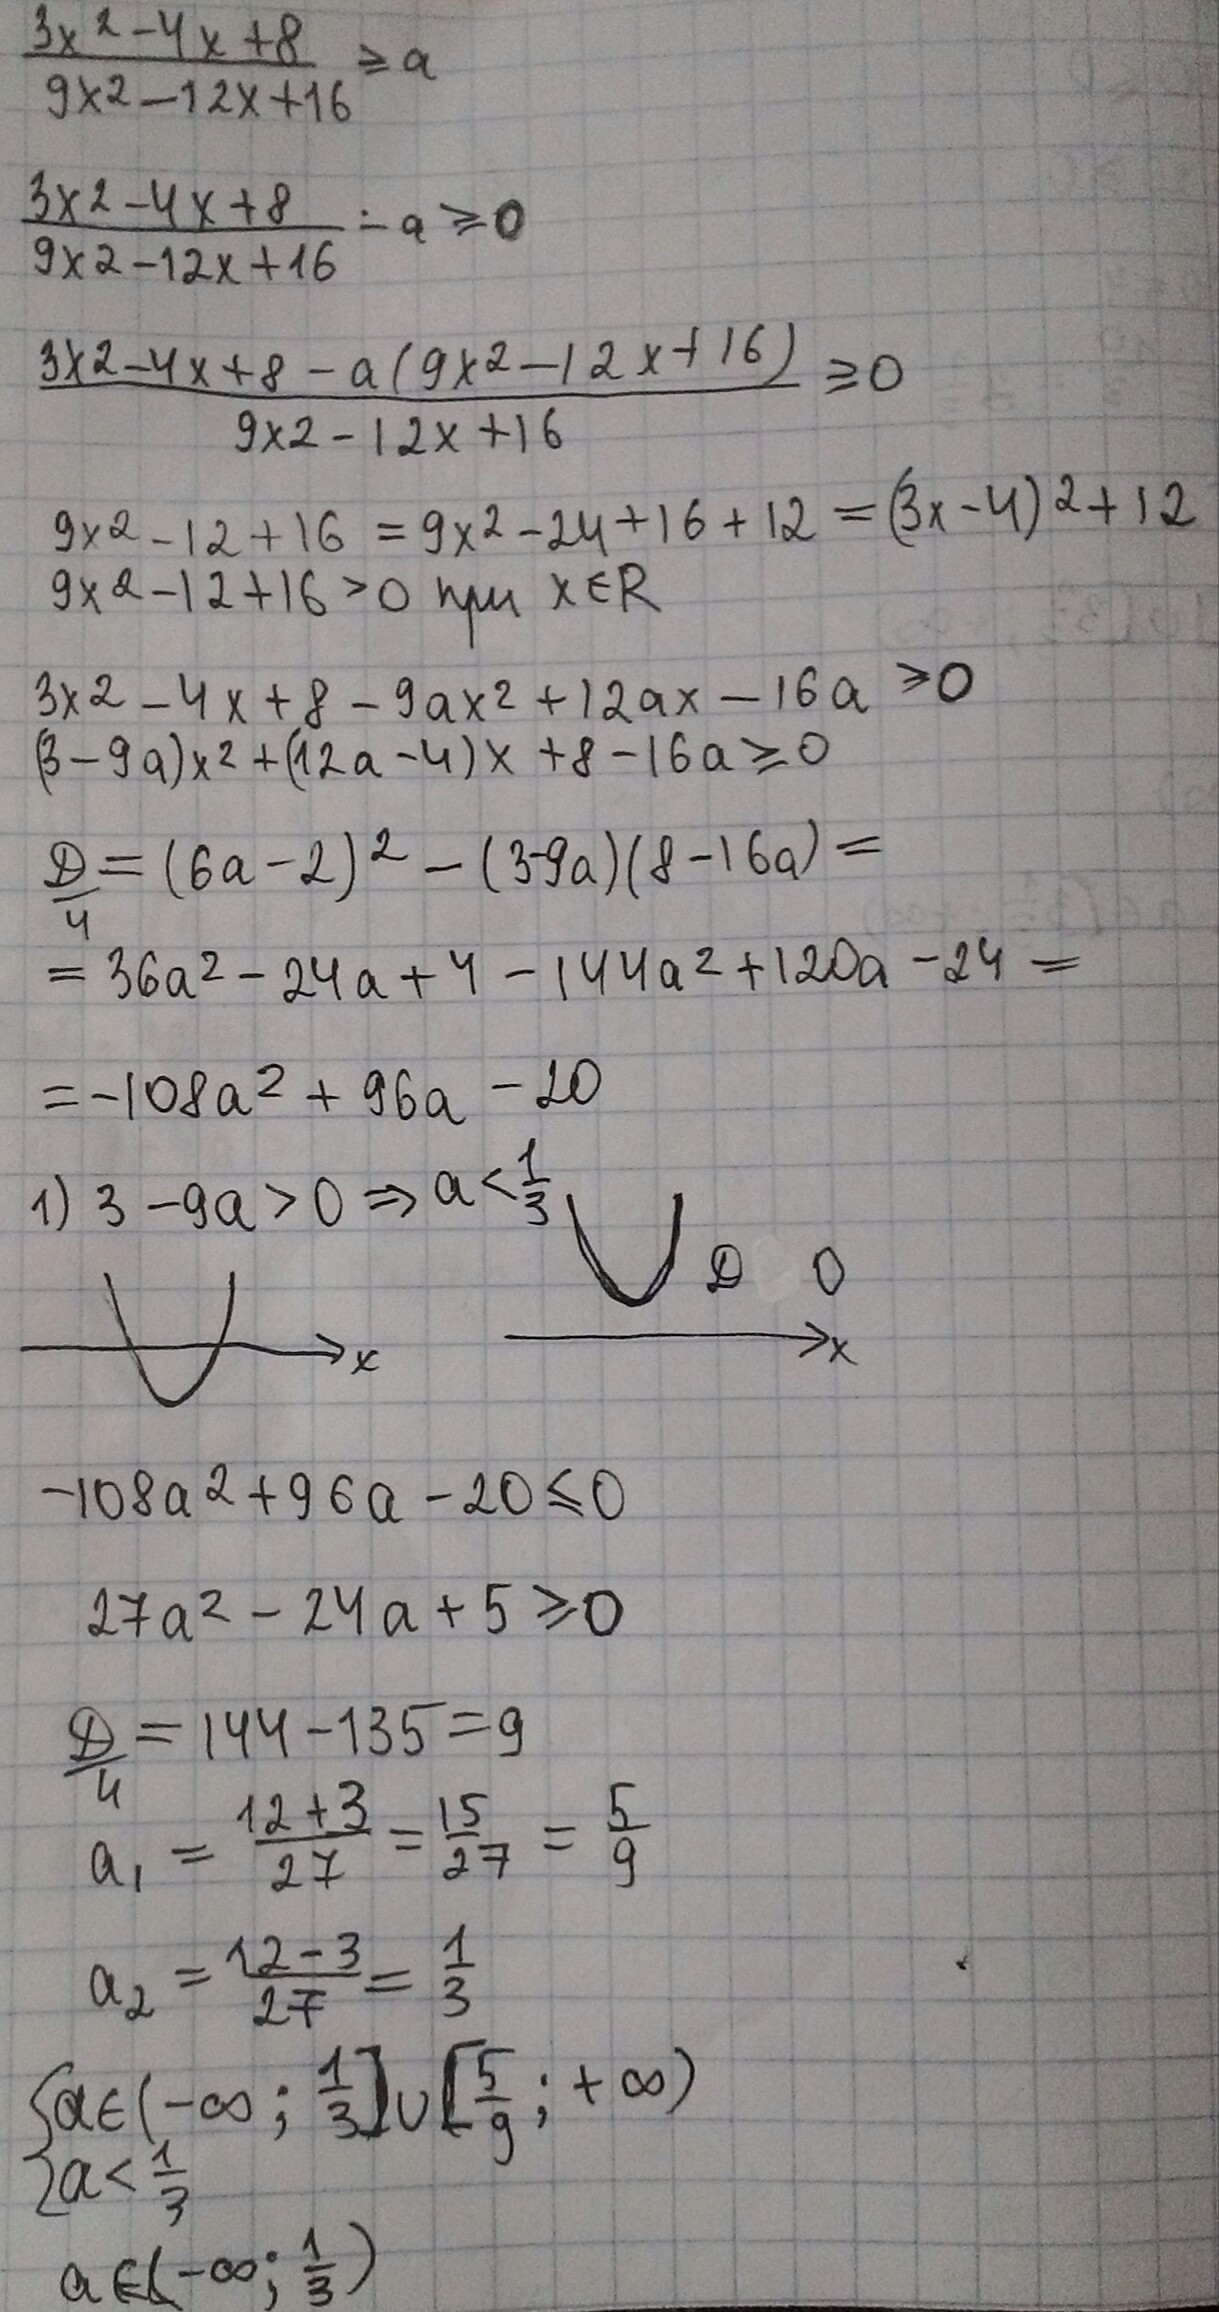 3x² - 4x + 8 / 9x2 - 12x + 16 ≥ a
3x2 - 4x + 8 / 9x2 - 12x + 16 - a ≥ 0
3x2 - 4x + 8 - a(9x2 - 12x + 16) / 9x2 - 12x + 16 ≥ 0
9x2 - 12 + 16 = 9x2 - 24 + 16 + 12 = (3x - 4)2 + 12
9x2 - 12 + 16 > 0 при x ∈ R
3x2 - 4x + 8 - 9ax2 + 12ax - 16a ≥ 0
(3 - 9a)x2 + (12a - 4)x + 8 - 16a ≥ 0
D/4 = (6a - 2)2 - (3-9a)(8 - 16a) =
= 36a2 - 24a + 4 - 144a2 + 120a - 24 =
= -108a2 + 96a - 20
1) 3 - 9a > 0 ⇒ a < 1/3
D 0
x
x
-108a2 + 96a - 20 ≤ 0
27a2 - 24a + 5 ≥ 0
D/4 = 144 - 135 = 9
a1 = 12 + 3 / 27 = 15/27 = 5/9
a2 = 12 - 3 / 27 = 1/3
{ a ∈ (-∞; 1/3] ∪ [5/9; +∞)
a < 1/3
a ∈ (-∞; 1/3)